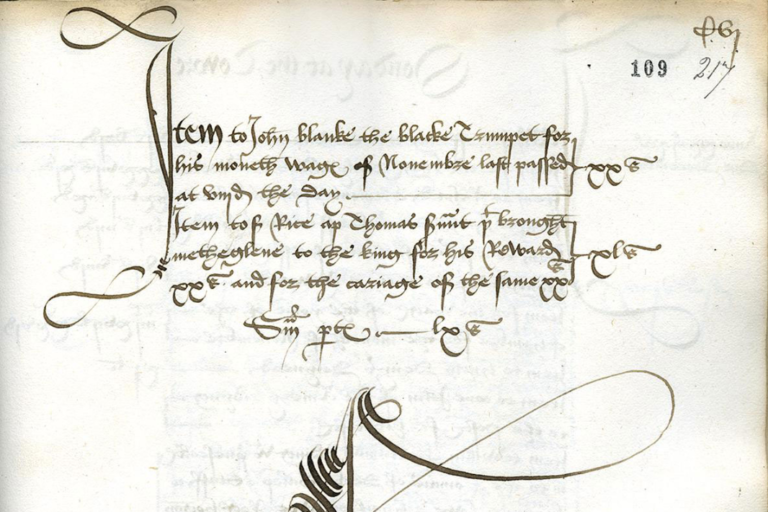 109 217
Item to John blanke the blacke Trumpet for
his moneth wages of Novembre last passed
at viijd the day xxs
Item to Rice ap Thomas s'unt yt brought
metheglene to the king for his Reward xls
xxs and for the cariage of the same xxs
Sm partes lxs